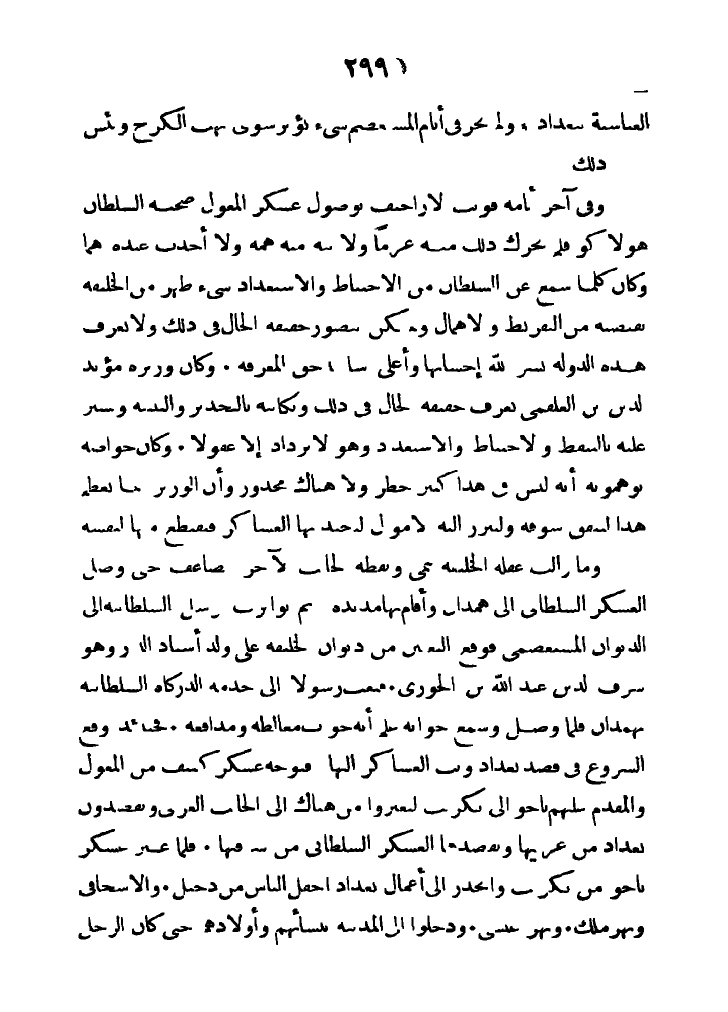 ٢٩٩
العباسية ببغداد، ولم يجر في أيام المستعصم شيء يؤثر سوى نهب الكرخ وبئس
ذلك
وفي آخر أيامه قويت الأراجيف بوصول عسكر المغول صحبة السلطان
هولاكو فلم يحرك ذلك منه عزما ولا نبه منه همة ولا أحدث عنده هما
وكان كلما سمع عن السلطان من الاحتياط والاستعداد شيء ظهر من الخليفة
نقيضه من التفريط والاهمال ولم يكن يتصور حقيقة الحال في ذلك ولا يعرف
هذه الدولة يسر الله إحسانها وأعلى شانها حق المعرفة. وكان وزيره مؤيد
الدين بن العلقمي يعرف حقيقة الحال في ذلك ويكاتبه بالتحذير والتنبيه ويشير
عليه بالتيقظ والاحتياط والاستعداد وهو لا يزداد إلا غفولا. وكان خواصه
يوهمونه أنه ليس في هذا كبير خطر ولا هناك محذور وأن الوزير إنما يعظم
هذا لينفق سوقه ولتبرز اليه الاموال ليجند بها العساكر فيقتطع منها لنفسه
وما زالت غفلة الخليفة تنمي ويقظة الجانب الآخر تتضاعف حتى وصل
العسكر السلطاني الى همدان وأقام بها مديدة ثم تواترت الرسل السلطانية الى
الديوان المستعصمي فوقع التعيين من ديوان الخليفة على ولد أستاذ الدار وهو
شرف الدين عبد الله بن الجوزي. فبعث رسولا الى خدمة الدركاه السلطانية
بهمدان فلما وصل وسمع جوابه علم أنه جواب مغالطة ومدافعة. فحينئذ وقع
الشروع في قصد بغداد وبث العساكر اليها فتوجه عسكر كثيف من المغول
والمقدم عليهم باجو الى تكريت ليعبروا من هناك الى الجانب الغربي ويقصدون
بغداد من غربيها ويقصدها العسكر السلطاني من شرقيها. فلما عبر عسكر
باجو من تكريت وانحدر الى أعمال بغداد اجفل الناس من دجيل. والاسحاقي
ونهر ملك. ونهر عيسى. ودخلوا الى المدينة بنسائهم وأولادهم حتى كان الرجل